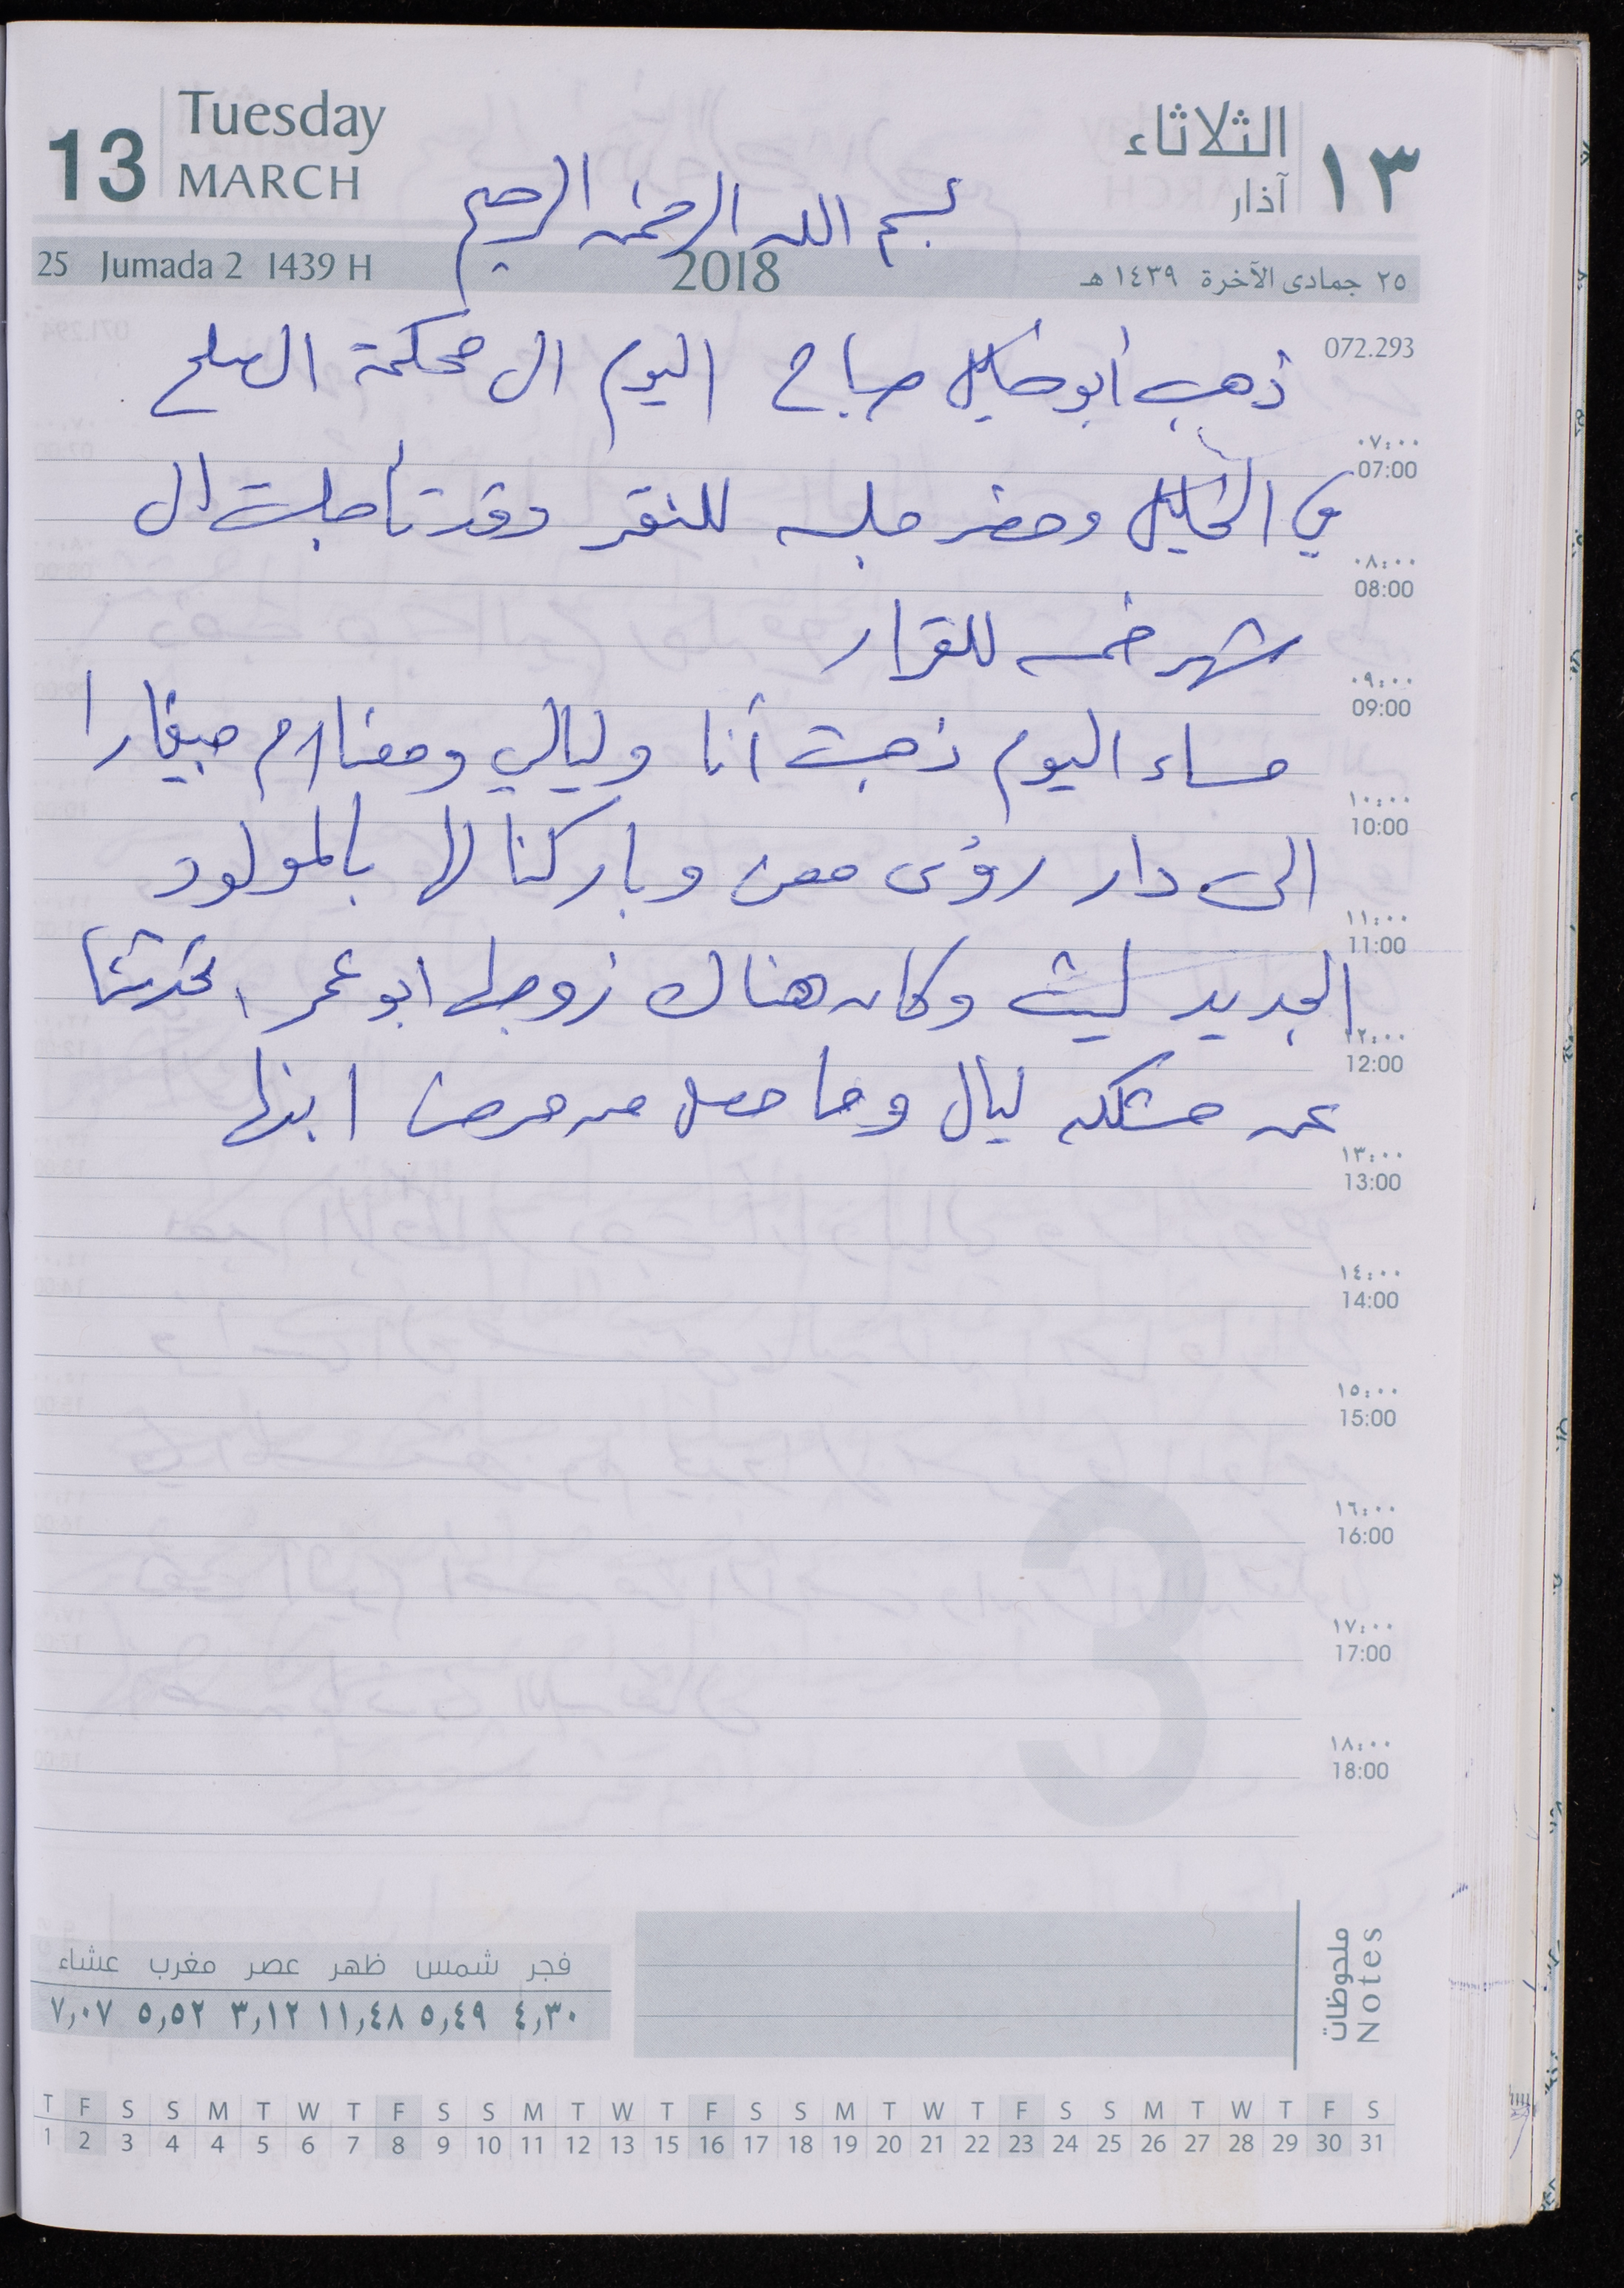 13 Tuesday MARCH
١٣ الثلاثاء آذار
بسم الله الرحمن الرحيم
25 Jumada 2 1439 H 2018 ٢٥ جمادى الآخرة ١٤٣٩ هـ
072.293
ذهب أبو خليل صباح اليوم الى محكمة الصلح
٠٧:٠٠
07:00
في الخليل وحضر جلسه وقد تأجلت الى
٠٨:٠٠
08:00
شهر خمسه للقرار
٠٩:٠٠
09:00
مساء اليوم ذهبت أنا وليالي ومعنا
١٠:٠٠
10:00
الى دار رؤى معن وباركنا لها بالمولود
١١:٠٠
11:00
الجديد ليث وكان هناك زوجها ابو عمر، تحدثنا
١٢:٠٠
12:00
عن مشكله ليال وما حصل من مرض ابنها
١٣:٠٠
13:00
١٤:٠٠
14:00
١٥:٠٠
15:00
١٦:٠٠
16:00
١٧:٠٠
17:00
١٨:٠٠
18:00
3
ملحوظات
Notes
فجر شمس ظهر عصر مغرب عشاء
٤,٣٠ ٥,٤٩ ١١,٤٨ ٣,١٢ ٥,٥٢ ٧,٠٧
T F S S M T W T F S S M T W T F S S M T W T F S S M T W T F S
1 2 3 4 4 5 6 7 8 9 10 11 12 13 15 16 17 18 19 20 21 22 23 24 25 26 27 28 29 30 31